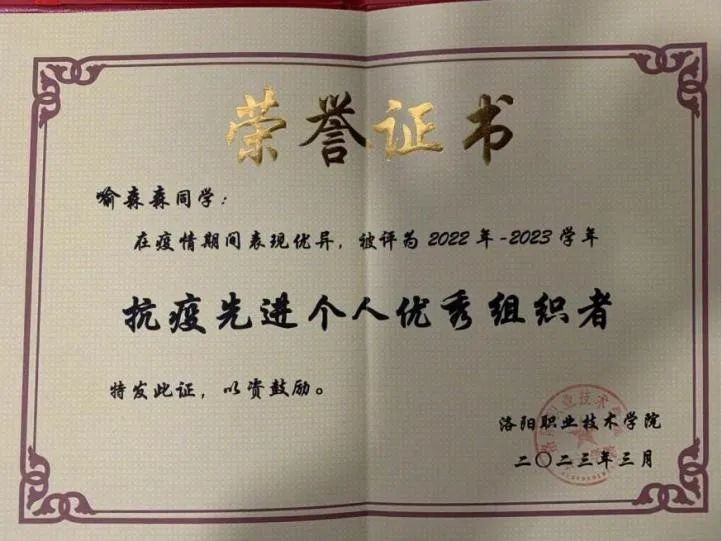 荣誉证书
喻森森同学：
在疫情期间表现优异，被评为2022年-2023学年
抗疫先进个人优秀组织者
特发此证，以资鼓励。
洛阳职业技术学院
二〇二三年三月